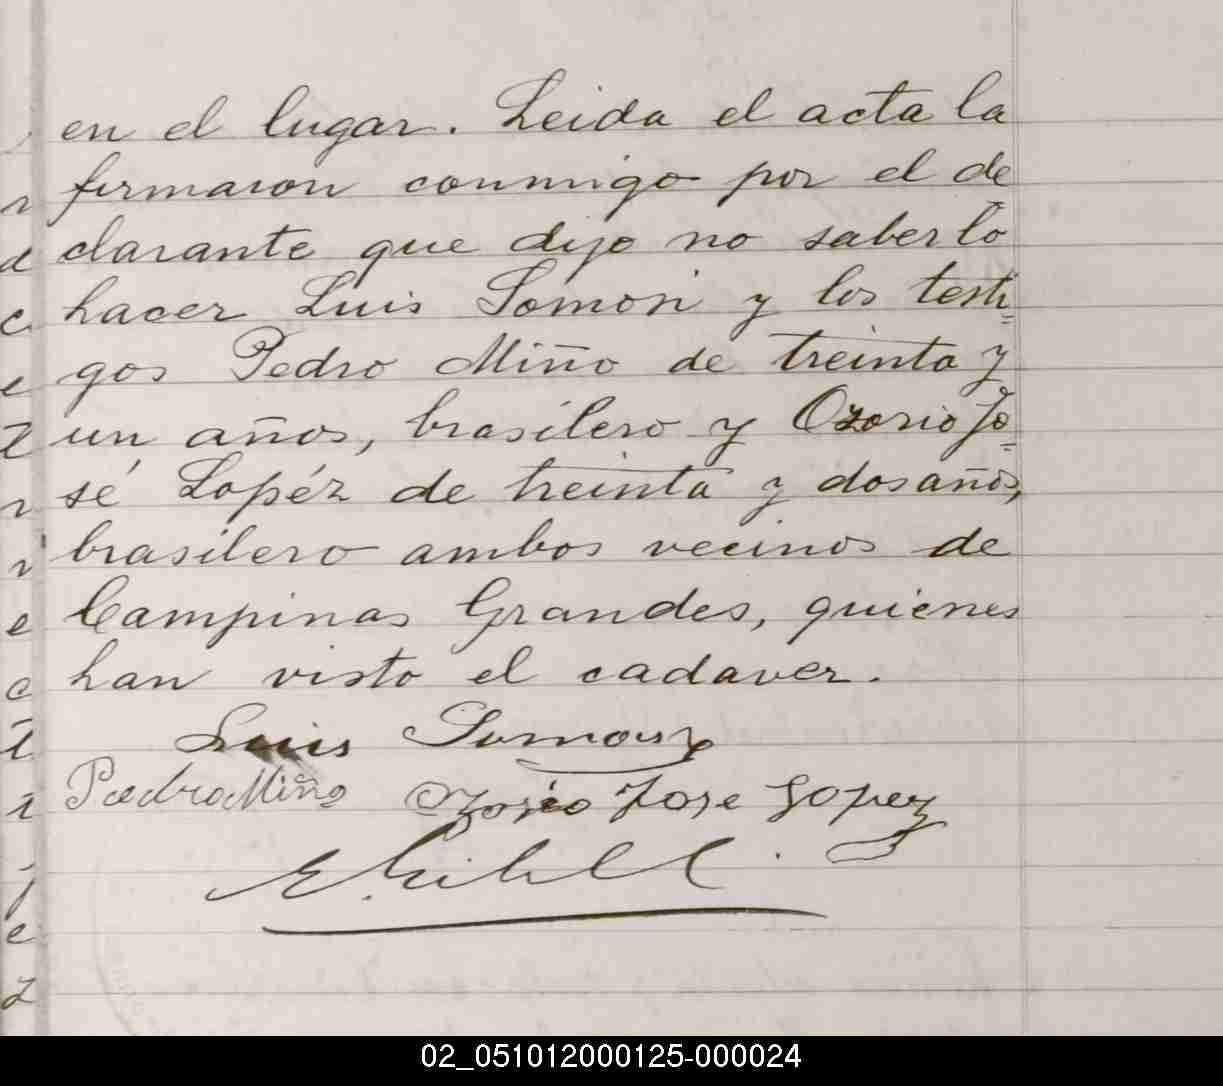 en el lugar. Leida el acta la
firmaron conmigo por el de
clarante que dijo no saberlo
hacer Luis Somoń y los testi=
gos Pedro Miño de treinta y
un años, brasilero y Ozorio Jo=
sé Lopéz de treinta y dos años,
brasilero ambos vecinos de
Campinas Grandes, quienes
han visto el cadaver.
Luis
Pedro Miño Ozorio Jose Lopez
02_051012000125-000024